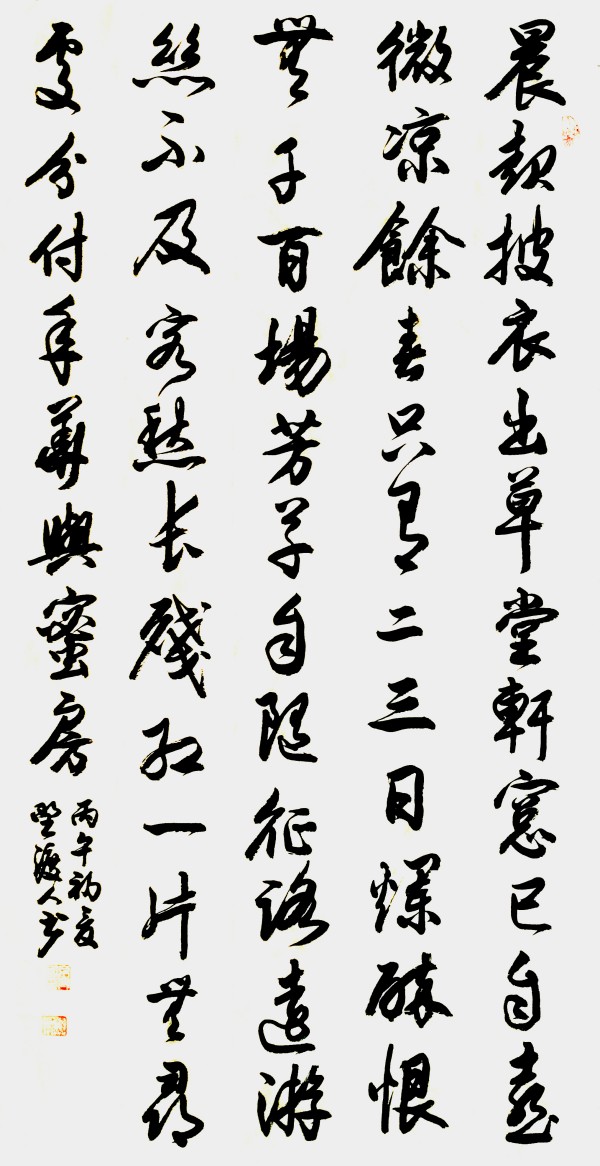 晨起披衣出草堂軒窓已自喜
微涼餘春只有二三日爛醉恨
無千百場芳草自隨征路遠游
絲不及客愁長殘紅一片無尋
處分付年華與蜜房
丙午初夏
渡人書